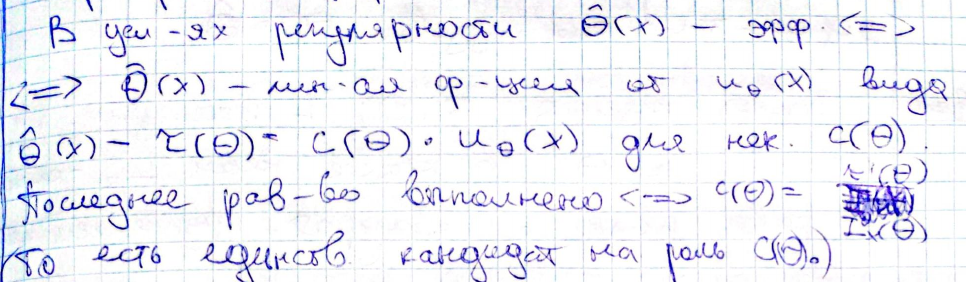 В усл-ях регулярности θ̂(X) – эфф. <=>
<=> θ̂(X) – лин-ая ф-ция от u_θ(X) вида
θ̂(X) – τ(θ) = C(θ) · u_θ(X) для нек. C(θ).
Последнее рав-во выполнено <=> C(θ) = τ'(θ) / I_X(θ)
(То есть единств. кандидат на роль C(θ).)